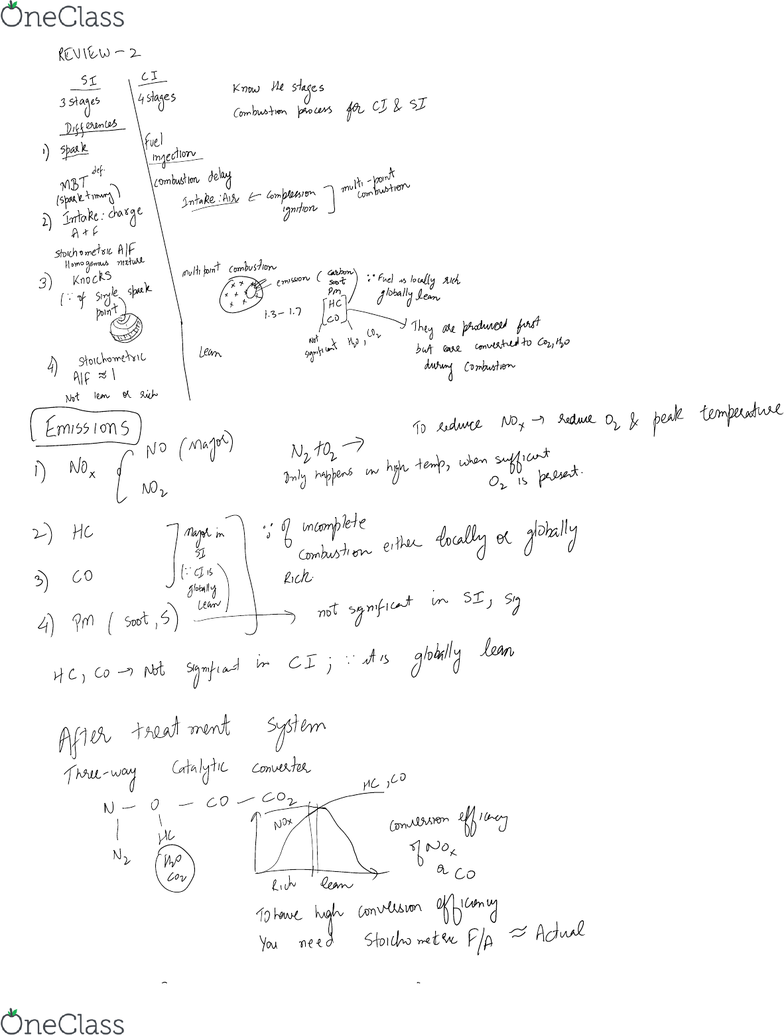 OneClass
REVIEW-2
SI
3 stages
Differences
1) Spark
MBT def.
(spark timing)
2) Intake: charge
A + F
Stoichometric A/F
Homogenous mixture
3) Knocks
(∵ of single spark
point)
4) Stoichometric
A/F ≈ 1
Not lean or rich
CI
4 stages
Fuel
injection
combustion delay
Intake: Air ← Compression
ignition
] multi-point
combustion
multi point combustion
emission ( carbon
soot
PM
[HC
CO]
1.3 - 1.7
Not
significant
H2O, CO2
Lean
Know the stages
Combustion process for CI & SI
∵ Fuel is locally rich
globally lean
→ They are produced first
but are converted to CO2, H2O
during combustion
Emissions
1) NOx { NO (Major)
NO2
N2 + O2 →
Only happens in high temp, when sufficent
O2 is present.
To reduce NOx → reduce O2 & peak temperature
2) HC
3) CO
4) PM ( soot, S)
Major in
SI
(∵ CI is
globally
lean)
∵ of incomplete
combustion either locally or globally
Rich
→ not significant in SI, sig
HC, CO → Not significant in CI ; ∵ it is globally lean
After treatment system
Three-way Catalytic converter
N - O - CO - CO2
N2
HC
H2O
CO2
NOx
HC, CO
Rich lean
Conversion efficiency
of NOx
a CO
To have high conversion efficiency
You need Stoichometric F/A ≈ Actual
OneClass